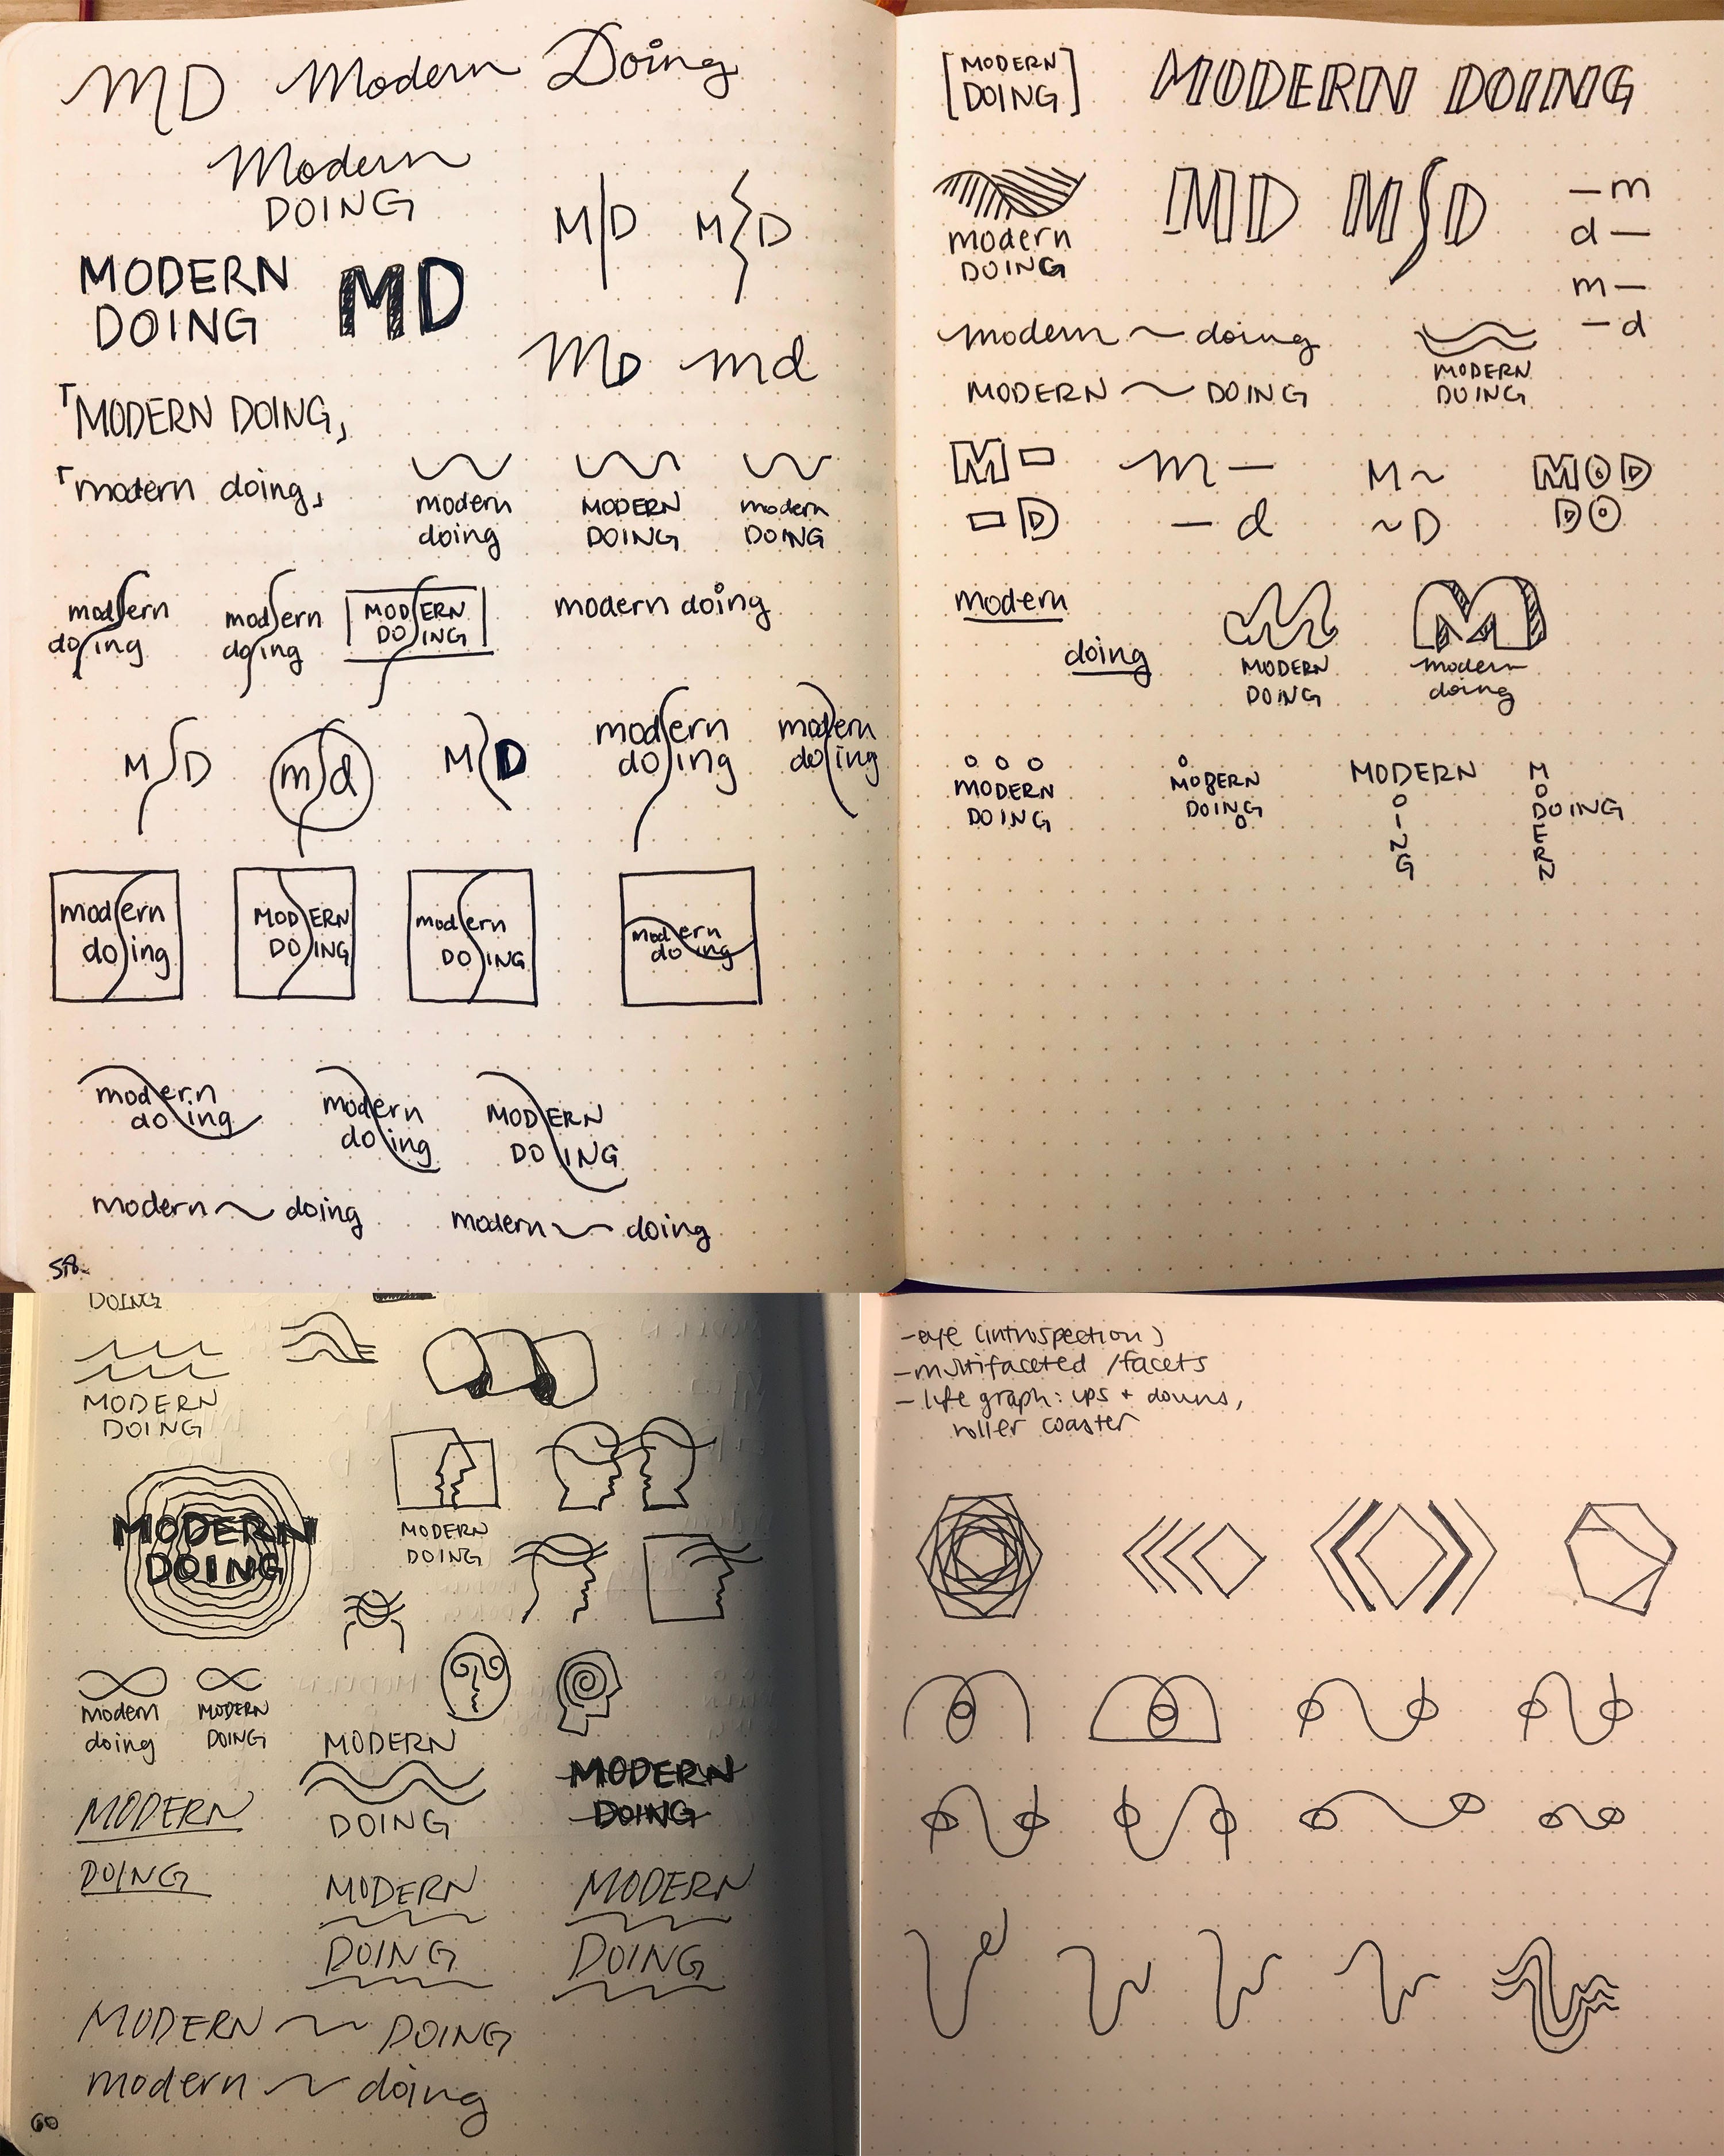 MD Modern Doing
Modern
DOING
M D M D
MODERN
DOING
MD
MD md
「MODERN DOING」
「modern doing」
modern
doing
MODERN
DOING
modern
DOING
modern
doing
modern
doing
MODERN
DOING
modern doing
M D
m d
M D
modern
doing
modern
doing
modern
doing
MODERN
DOING
modern
DOING
modern
doing
modern
doing
modern
doing
MODERN
DOING
modern ~ doing
modern ~ doing
58
[MODERN
DOING]
MODERN DOING
modern
DOING
MD
M D
— m
d —
m —
— d
modern ~ doing
MODERN ~ DOING
MODERN
DOING
M
D
m —
— d
M ~
~ D
MOD
DO
modern
doing
MODERN
DOING
M
modern
doing
MODERN
DOING
MODERN
DOING
MODERN
O
I
N
G
M
O
DOING
E
R
N
DOING
MODERN
DOING
MODERN
DOING
MODERN
DOING
modern
doing
MODERN
DOING
MODERN
DOING
MODERN
DOING
MODERN
DOING
MODERN
DOING
MODERN
DOING
MODERN ~ DOING
modern ~ doing
60
- eye (introspection)
- multifaceted / facets
- life graph: ups + downs,
roller coaster